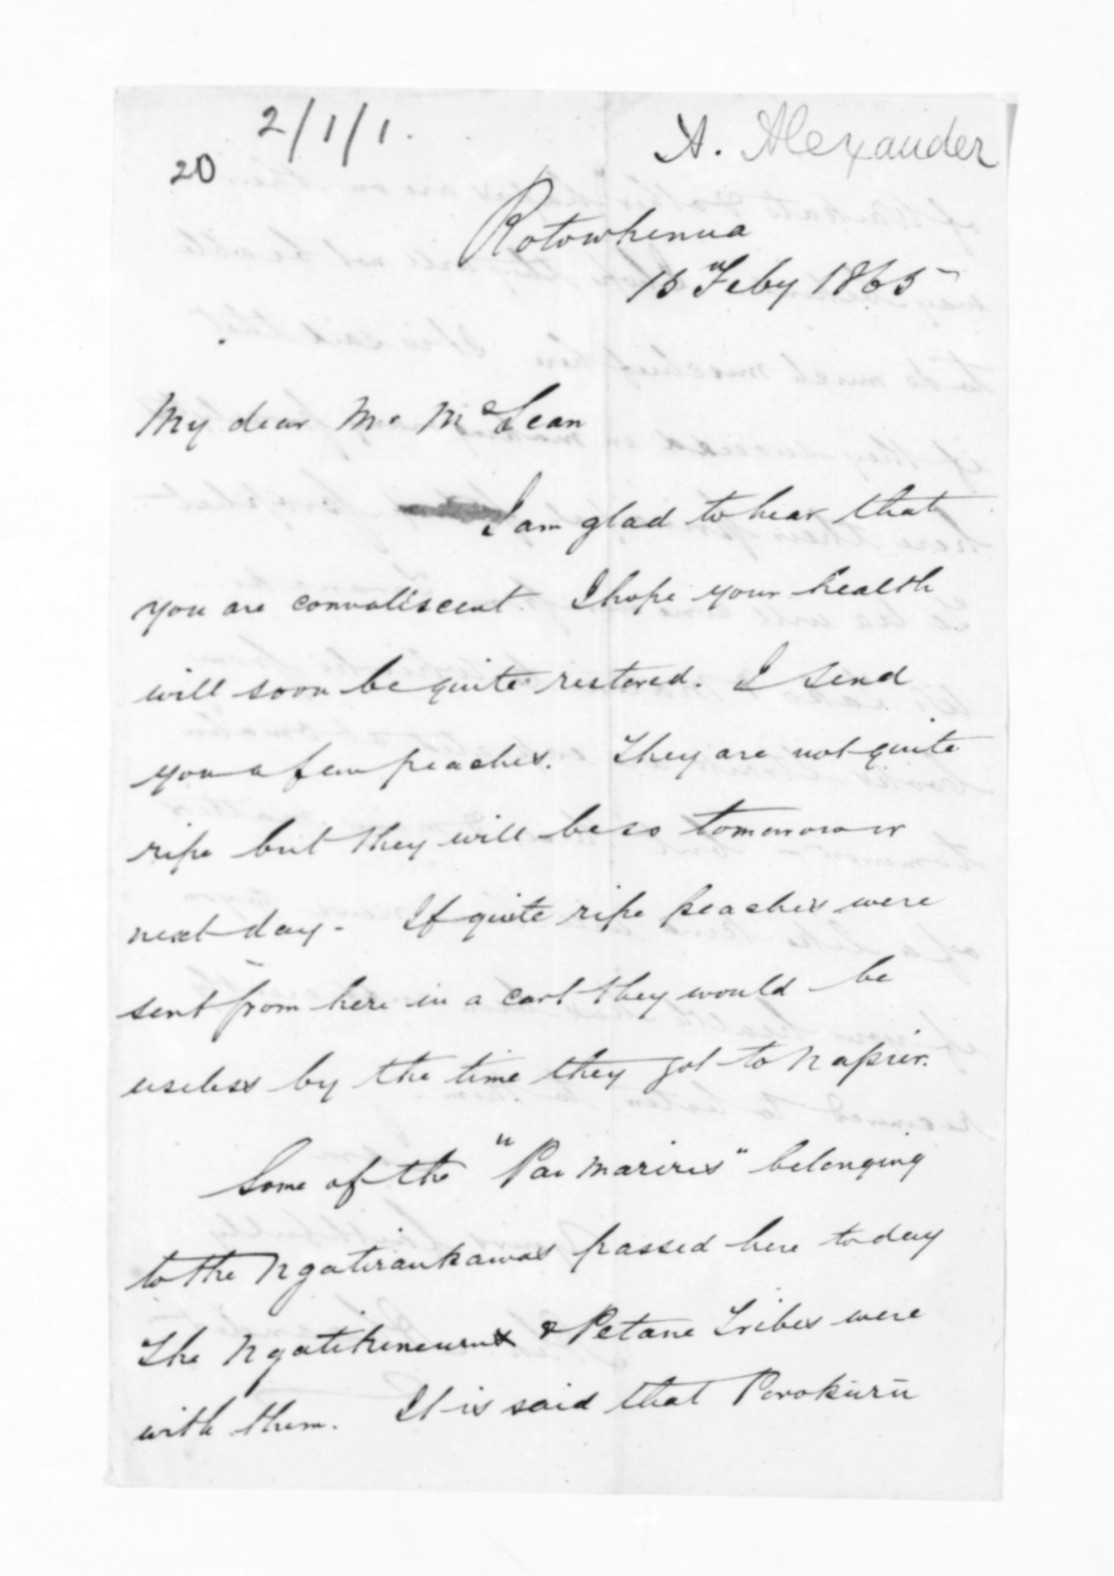 2/1/1.
20
A. Alexander
Rotowhenua
15 Feby 1865
My dear Mr McLean
I am glad to hear that
you are convaliscent. I hope your health
will soon be quite restored. I send
you a few peaches. They are not quite
ripe but they will be so tomorrow or
next day. If quite ripe peaches were
sent from here in a cart they would be
useless by the time they got to Napier.
Some of the "Pai marires" belonging
to the Ngatiraukawas passed here today
The Ngatihineurus & Petane Tribes were
with them. It is said that Porokūrū